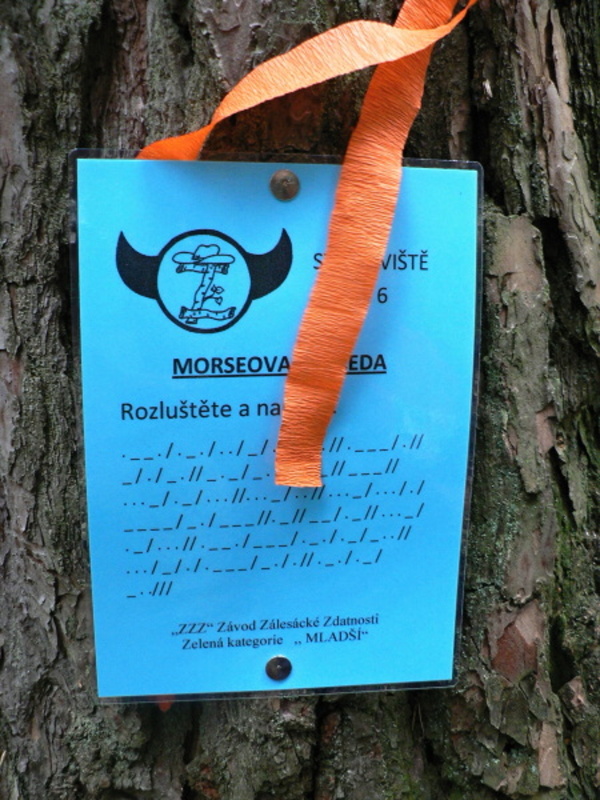 6
MORSEOVA
Rozluštěte a
. _ _ . / . _ . / . . / _ / . // . _ _ _ / . //
_ / . / _ . // _ . _ / _ // _ _ _ //
. . . _ / . _ / . . . // . . . _ / . . // . . . _ / . . . / . /
_ _ _ _ / _ . / _ _ _ // . _ // _ _ / . _ // . . . _ /
. _ / . . . // . _ _ . / _ _ _ / . _ . / . _ / _ . . //
. . . / _ . / . / . _ _ _ / _ . / . // . _ . / . _ /
_ . . ///
„ZZZ“ Závod Zálesácké Zdatnosti
Zelená kategorie „ MLADŠÍ“